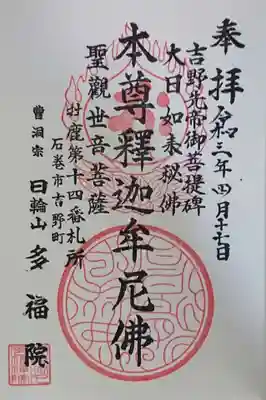 奉拝
令和三年四月十七日
吉野先帝御菩提碑
大日如来秘佛
本尊釋迦牟尼佛
聖觀世音菩薩
牡鹿第十四番札所
石巻市吉野町
曹洞宗
日輪山多福院